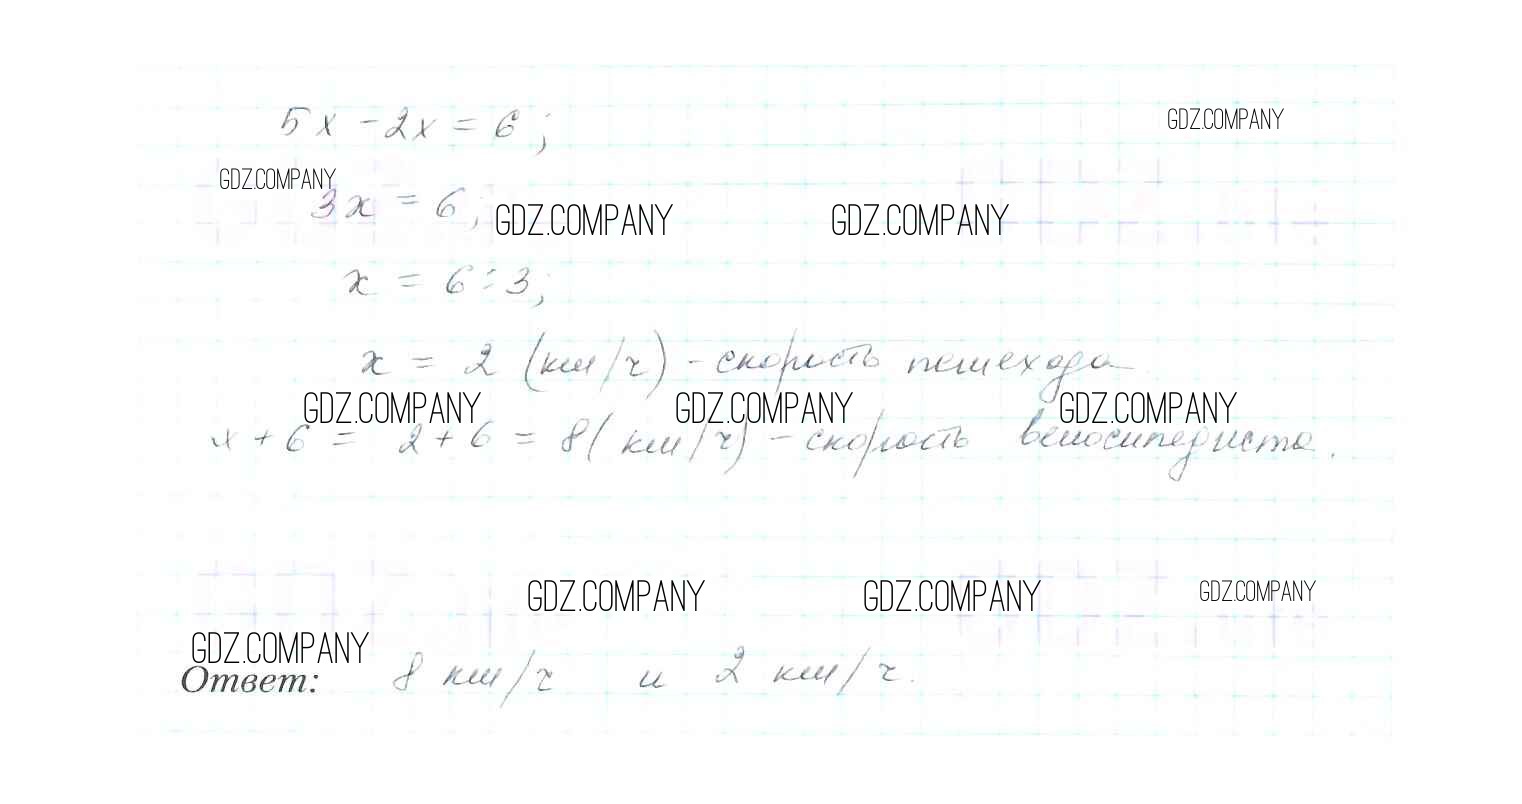 5x - 2x = 6;
GDZ.COMPANY
GDZ.COMPANY
3x = 6;
GDZ.COMPANY GDZ.COMPANY
x = 6 : 3;
x = 2 (км/ч) - скорость пешехода
GDZ.COMPANY GDZ.COMPANY GDZ.COMPANY
x + 6 = 2 + 6 = 8 (км/ч) - скорость велосипедиста.
GDZ.COMPANY GDZ.COMPANY GDZ.COMPANY
GDZ.COMPANY
Ответ: 8 км/ч и 2 км/ч.